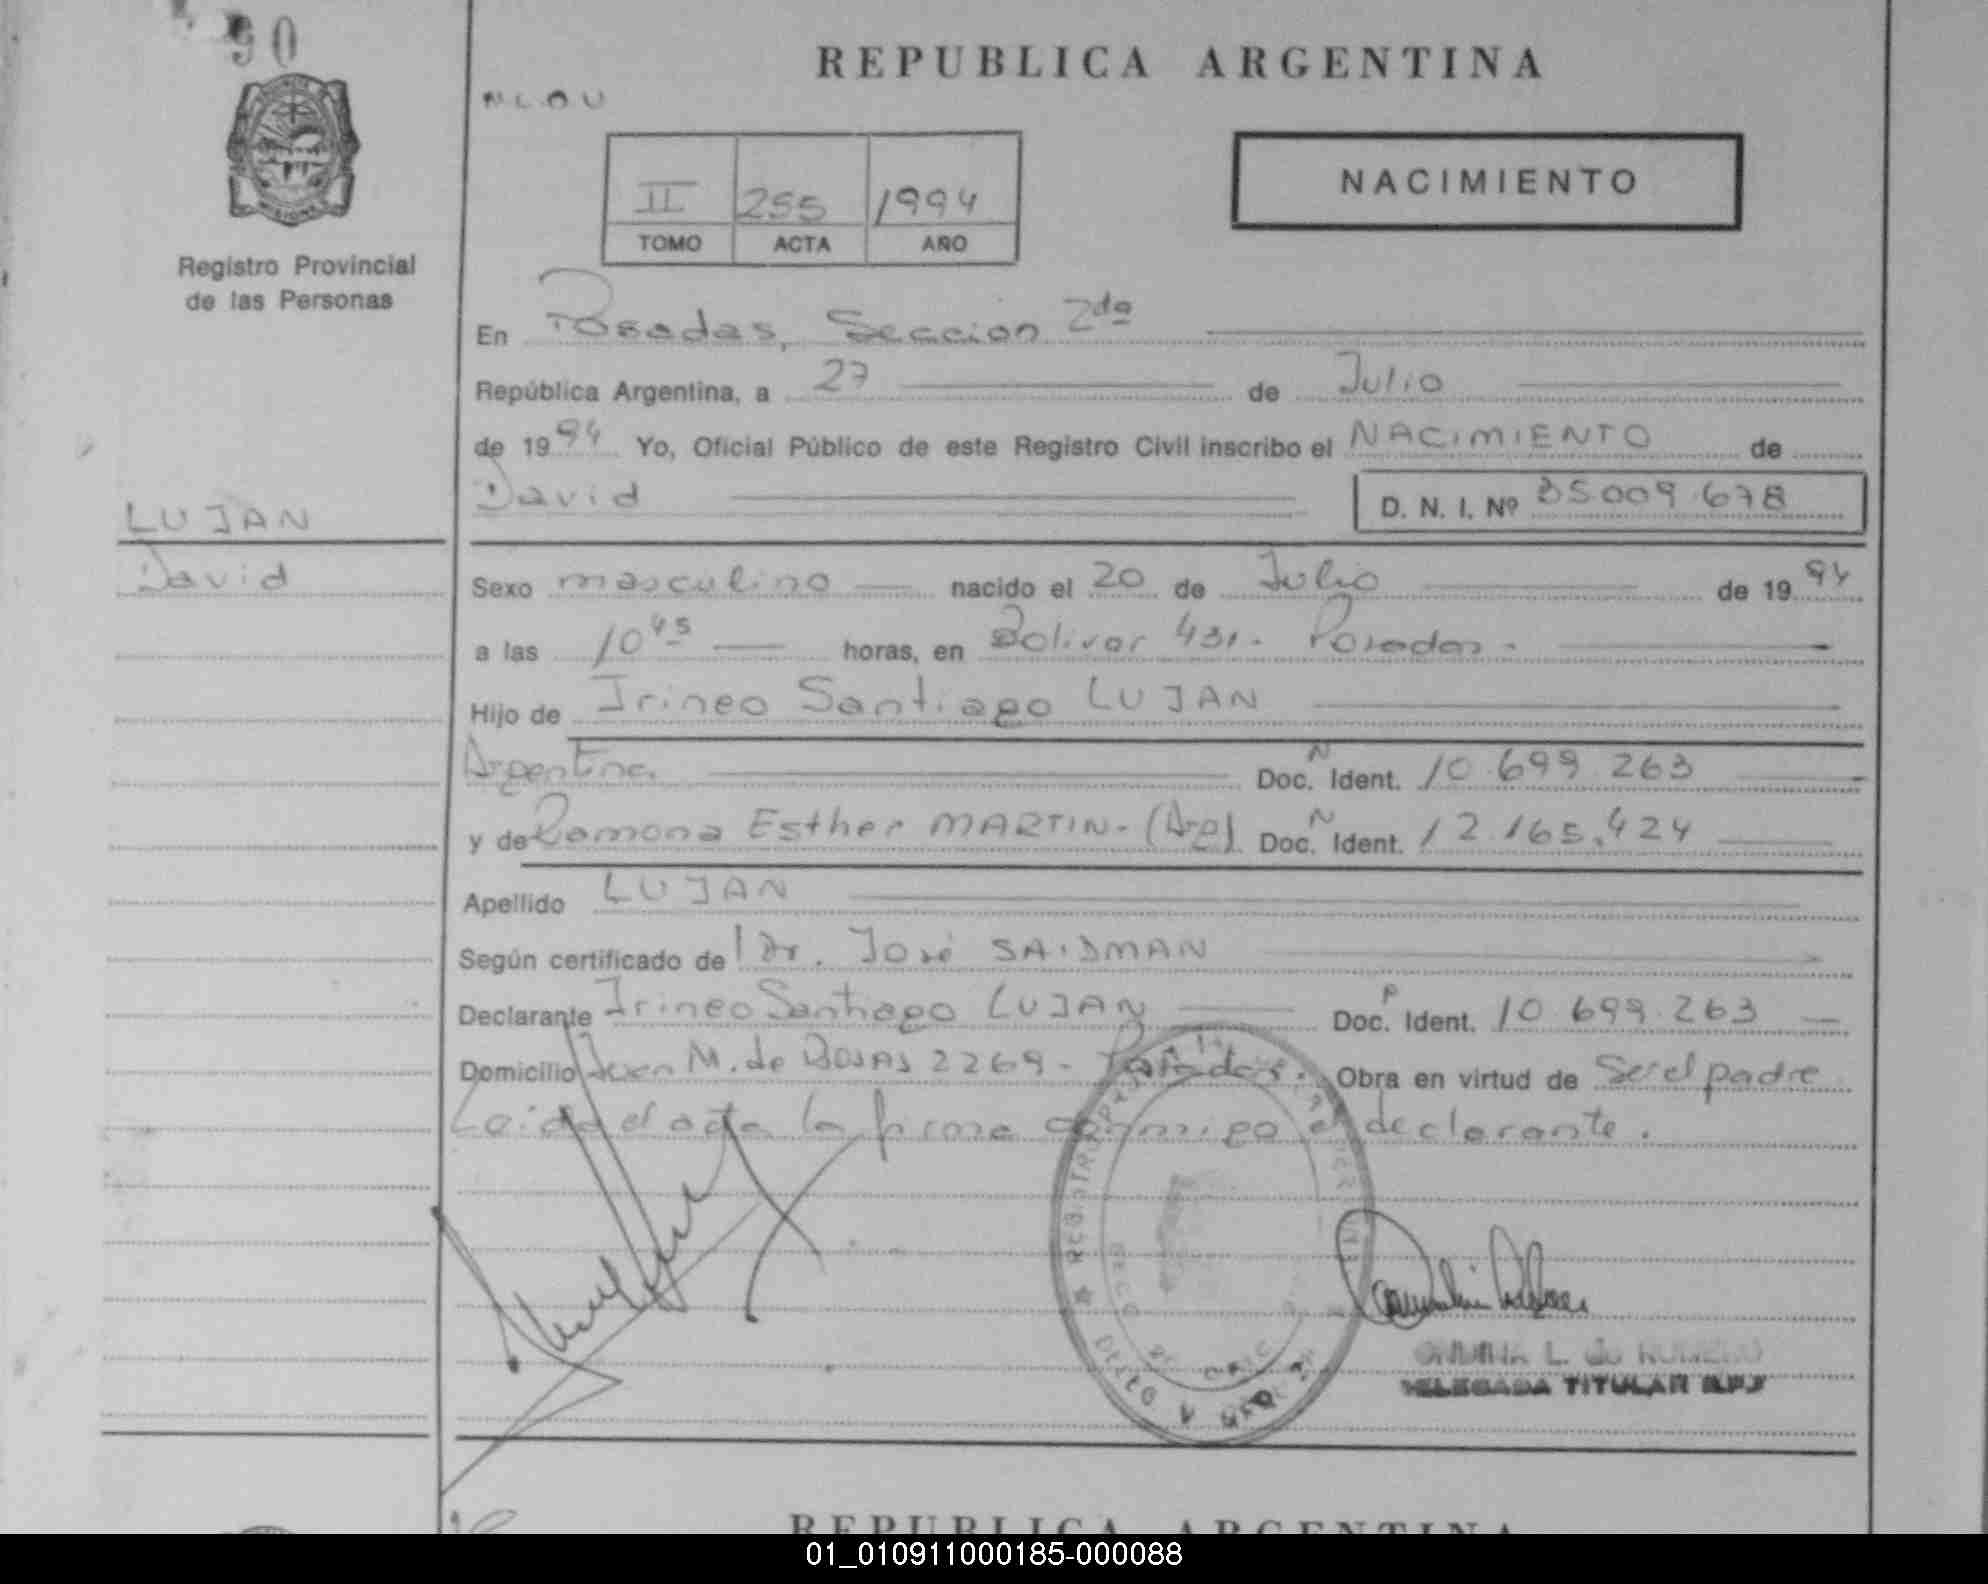 90
REPUBLICA ARGENTINA
NACIMIENTO
II 255 1994
TOMO ACTA AÑO
Registro Provincial
de las Personas
En Posadas, Seccion 2da
República Argentina, a 27 de Julio
de 1994 Yo, Oficial Público de este Registro Civil inscribo el NACIMIENTO de
David D. N. I. Nº 35.009.678
LUJAN
David
Sexo masculino nacido el 20 de Julio de 1994
a las 10 45 horas, en Bolivar 431. Posadas.
Hijo de Irineo Santiago LUJAN
Argentina Doc. N Ident. 10.699.263
y de Ramona Esther MARTIN. (Arg) Doc. N Ident. 12.165.424
Apellido LUJAN
Según certificado de Dr. José SAIDMAN
Declarante Irineo Santiago LUJAN Doc. Ident. 10.699.263
Domicilio Juan M. de ROSAS 2269 - Posadas. Obra en virtud de Ser el padre
Leida el acta la firma conmigo el declarante.
L. de ROMERO
DELEGADA TITULAR
REPUBLICA ARGENTINA
01_010911000185-000088